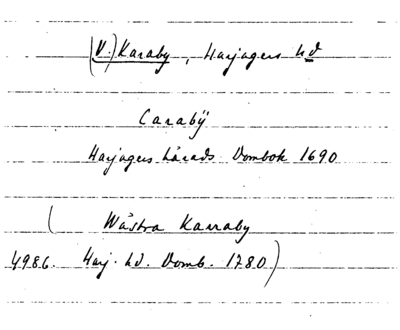 (V.) Karaby, Harjagers hd
Carabÿ
Harjagers härads Dombok 1690
( Wästra Karraby
4986. Harj. hd. Domb. 1780)